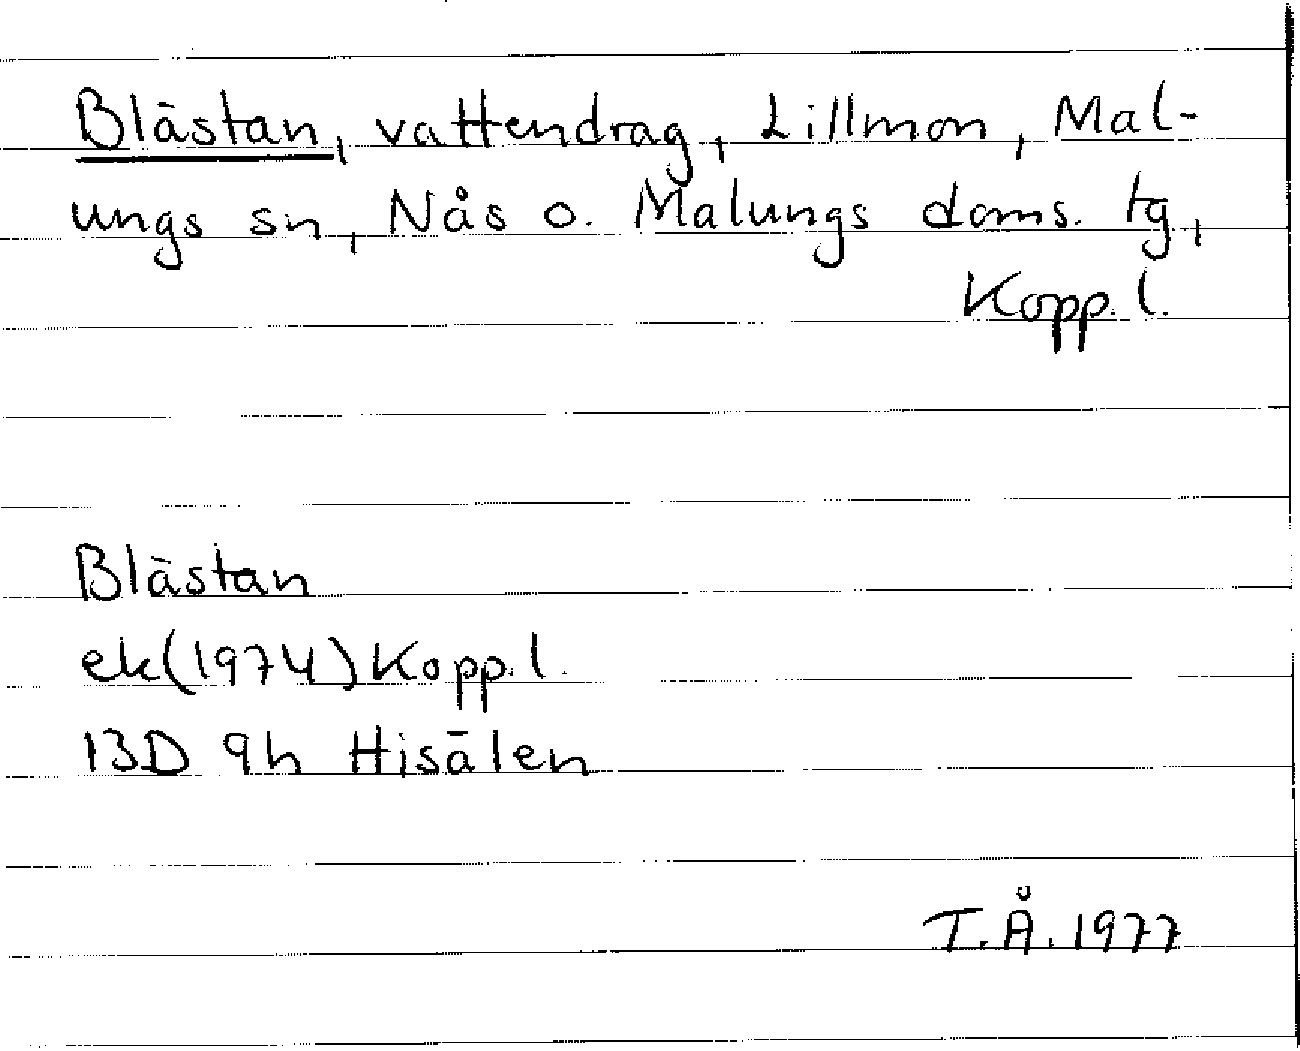 Blästan, vattendrag, Lillmon, Mal-
ungs sn, Nås o. Malungs doms. tg,
Kopp. l.
Blästan
ek(1974) Kopp. l.
13D 9h Hisälen
T.Å. 1977